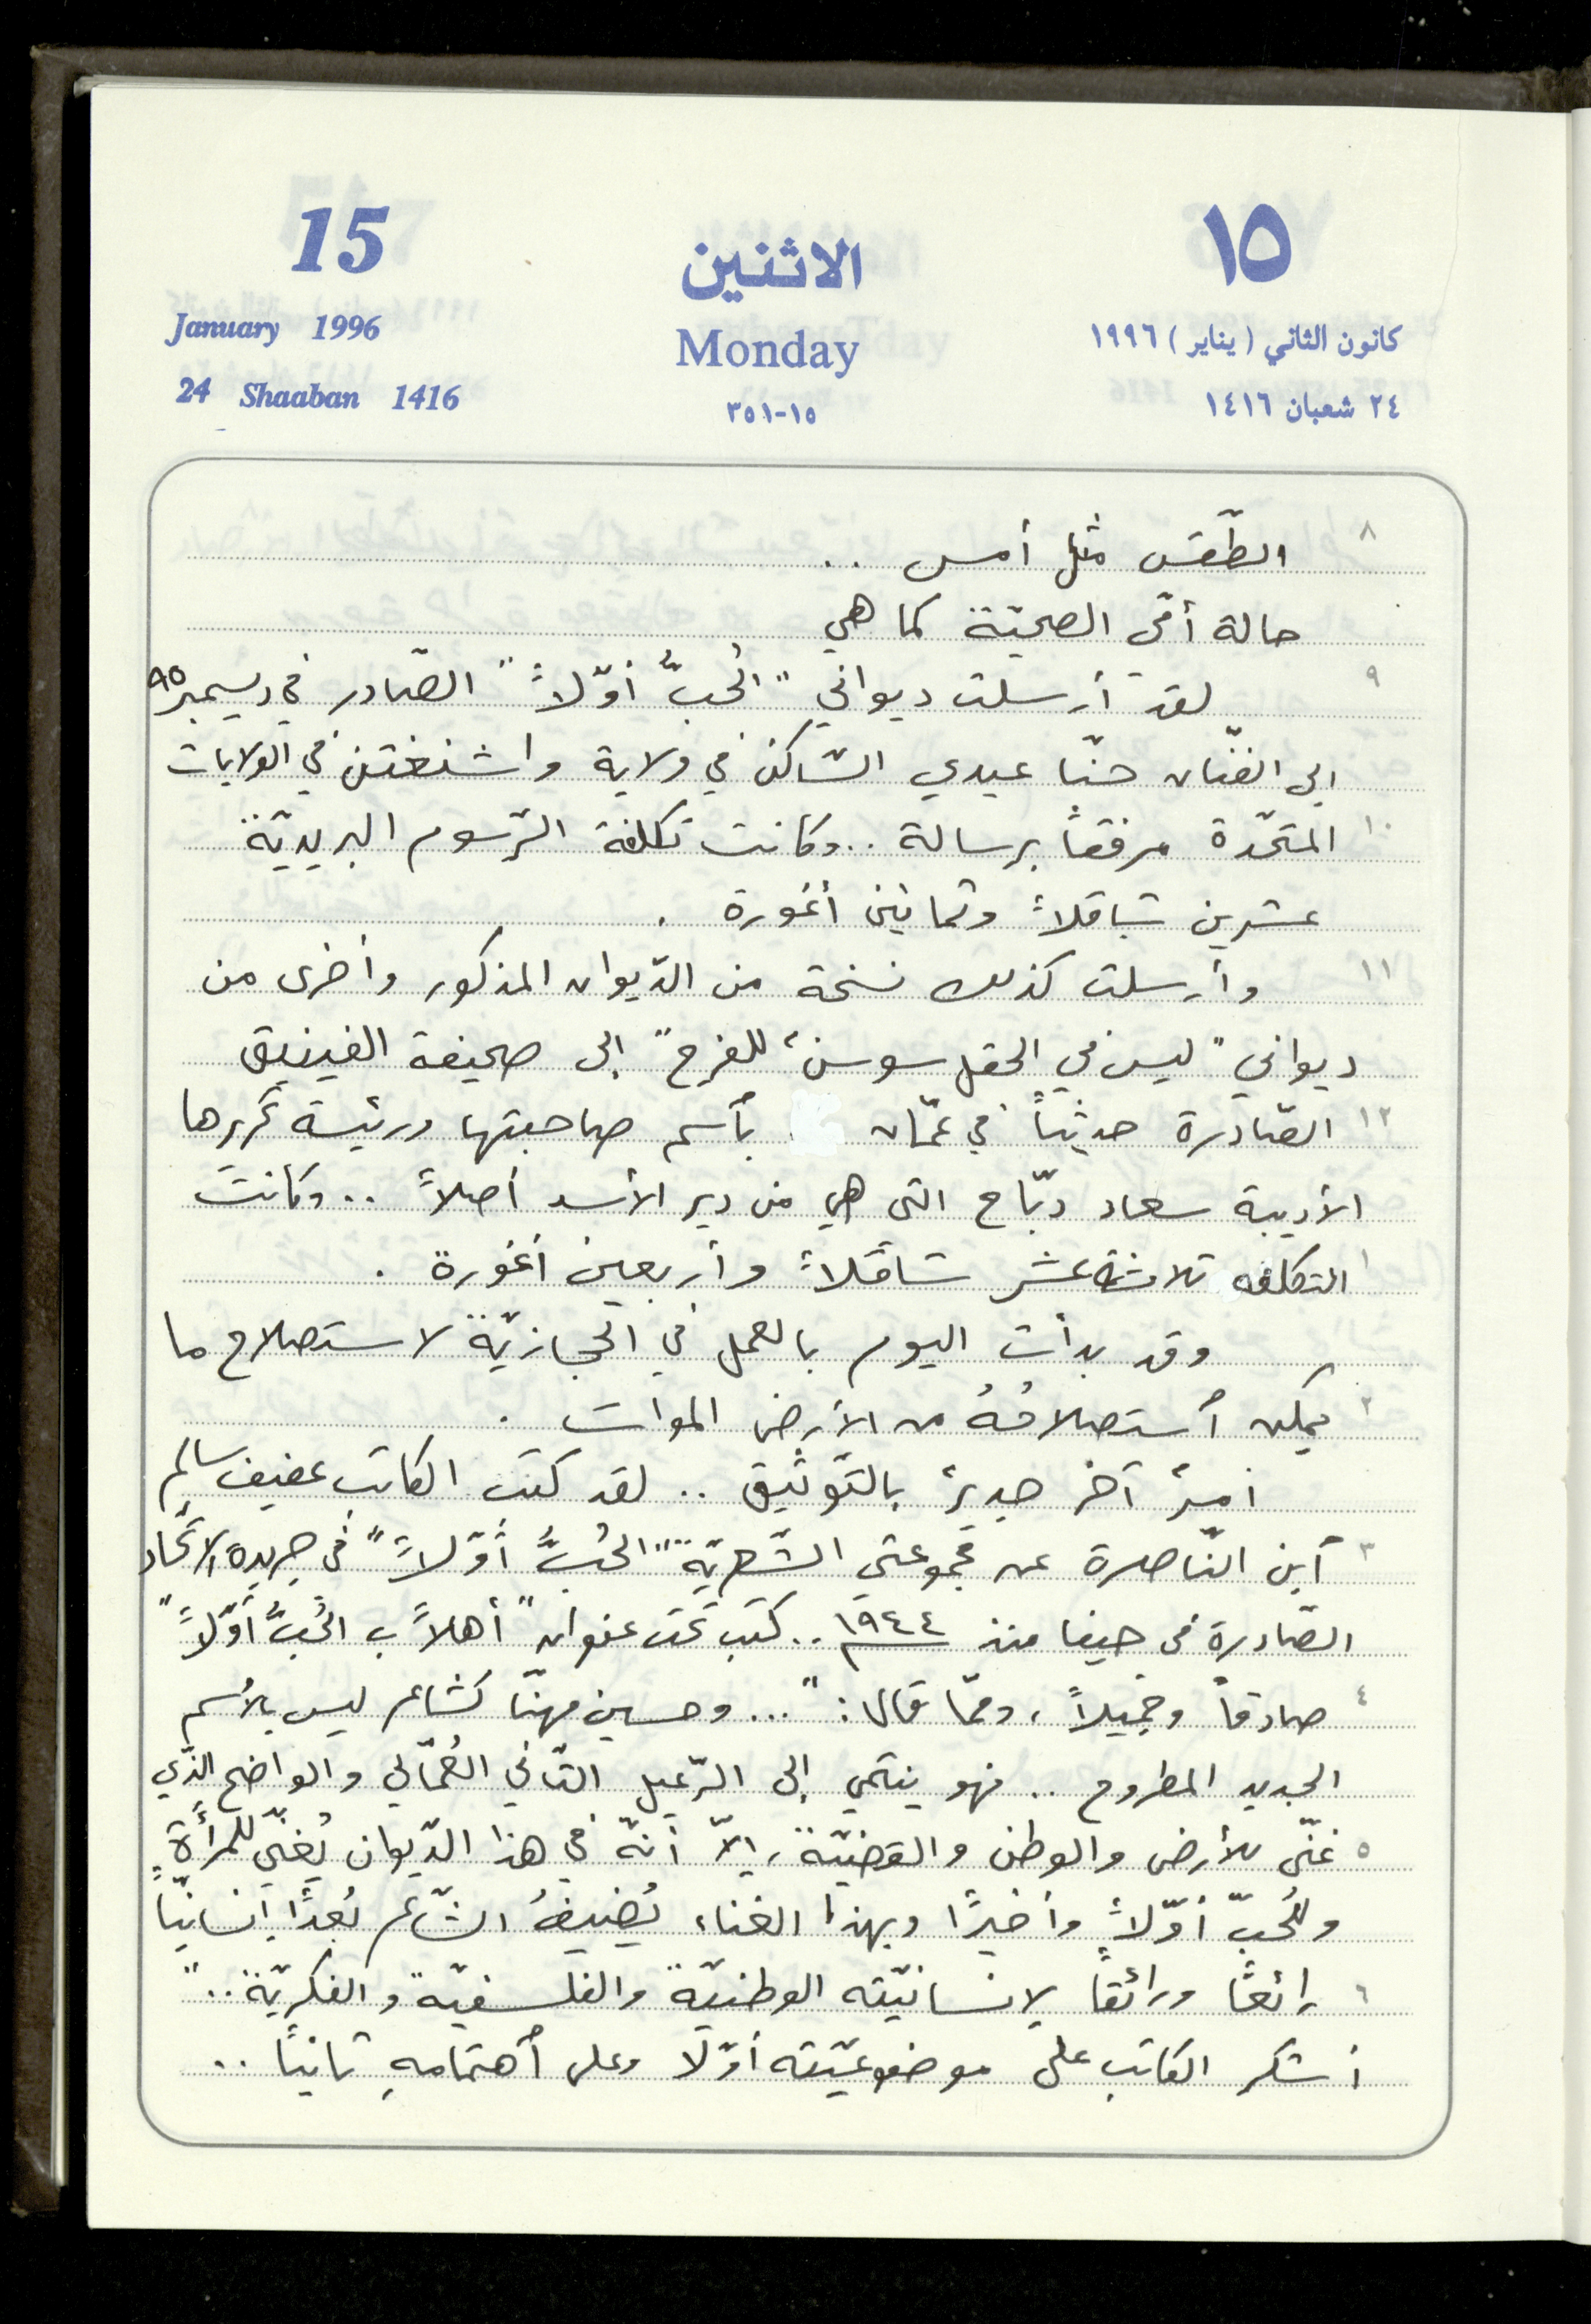 15
الاثنين
١٥
January 1996
Monday
كانون الثاني (يناير) ١٩٩٦
24 Shaaban 1416
١٥-٣٥١
٢٤ شعبان ١٤١٦
٨ الطّقس مثل أمس ..
حالة أمّي الصحيّة كما هي
٩ لقد أرسلت ديواني "الحُبُّ أوّلاً" الصّادر في ديسمبر ٩٥
إلى الفنّان حنّا عيدي السّاكن في ولاية واشنغتن في الولايات
١٠ المتحّدة مرفقاً برسالة .. وكانت تكلفة الرّسوم البريديّة
عشرين شاقلاً وثمانين أغورة .
١١ وأرسلت كذلك نسخة من الدّيوان المذكور وأخرى من
ديواني "ليس في الحقل سوسنٌ للفرح" إلى صحيفة الفينيق
١٢ الصّادرة حديثاً في عمّان بأسم صاحبتها ورئيسة تحريرها
الأديبة سعاد دبّاح التي هي من دير الأسد أصلاً .. وكانت
١ التكلفه ثلاثة عشر شاقلاً وأربعين أغورة .
وقد بدأت اليوم بالعمل في الحجازيّة لاستصلاح ما
٢ يمكن أستصلاحُهُ من الأرض الموات .
أمرٌ آخر جديرٌ بالتّوثيق .. لقد كتب الكاتب عفيف سالم
٣ آبن النّاصرة عن مجموعتي الشّعريّة "الحُبُّ أوّلاً" في جريدة الاتّحاد
الصّادرة في حيفا منذ ١٩٤٤ .. كتب تحت عنوان "أهلاً ب الحُبُّ أوّلاً"
٤ صادقاً وجميلاً، وممّا قال: "... وحسين مهنّا كشاعر ليس بالأسم
الجديد المطروح .. فهو ينتمي إلى الرّعيل الثّاني العُمّالي والواضح الذّي
٥ غنّى للأرض والوطن والقضيّة، إلاّ أنّه في هذا الدّيوان يُغنّي للمرأة
وللحُبّ أوّلاً وأخيرًا وبهذا الغناء يُضيفُ الشّاعر بُعدًا إنسانيّاً
٦ رائعًا ورائقاً لإنسانيّته الوطنيّة والفلسفيّة والفكريّة .."
أشكر الكاتب على موضوعيّته أوّلا وعلى أهتمامهِ ثانيًا ..